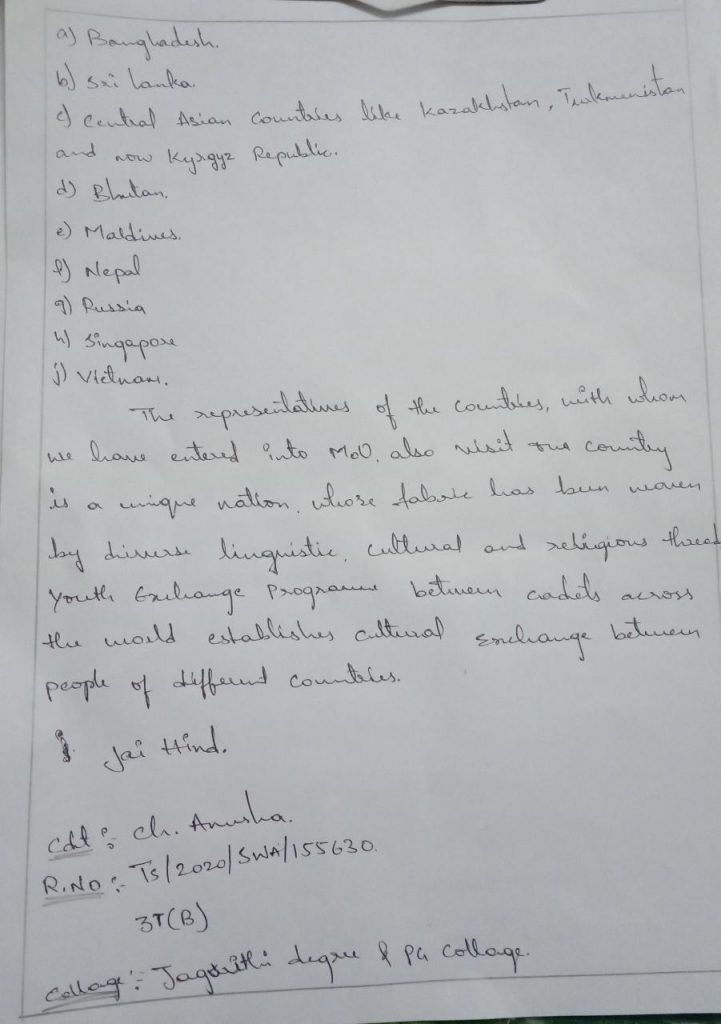 a) Bangladesh.
b) Sri lanka
c) Central Asian Countries like Kazakhstan, Turkmenistan
and now Kyrgyz Republic.
d) Bhutan.
e) Maldives.
f) Nepal
g) Russia
h) Singapore
j) Vietnam.
The representatives of the countries, with whom
we have entered into MoU, also visit our country
is a unique nation, whose fabric has been woven
by diverse linguistic, cultural and religious thread
Youth Exchange Programme between cadets across
the world establishes cultural exchange between
people of different countries.
Jai Hind.
Cdt :- Ch. Anusha.
R.No :- TS/2020/SWA/155630.
3T(B)
Collage :- Jagruthi degree & PG Collage.